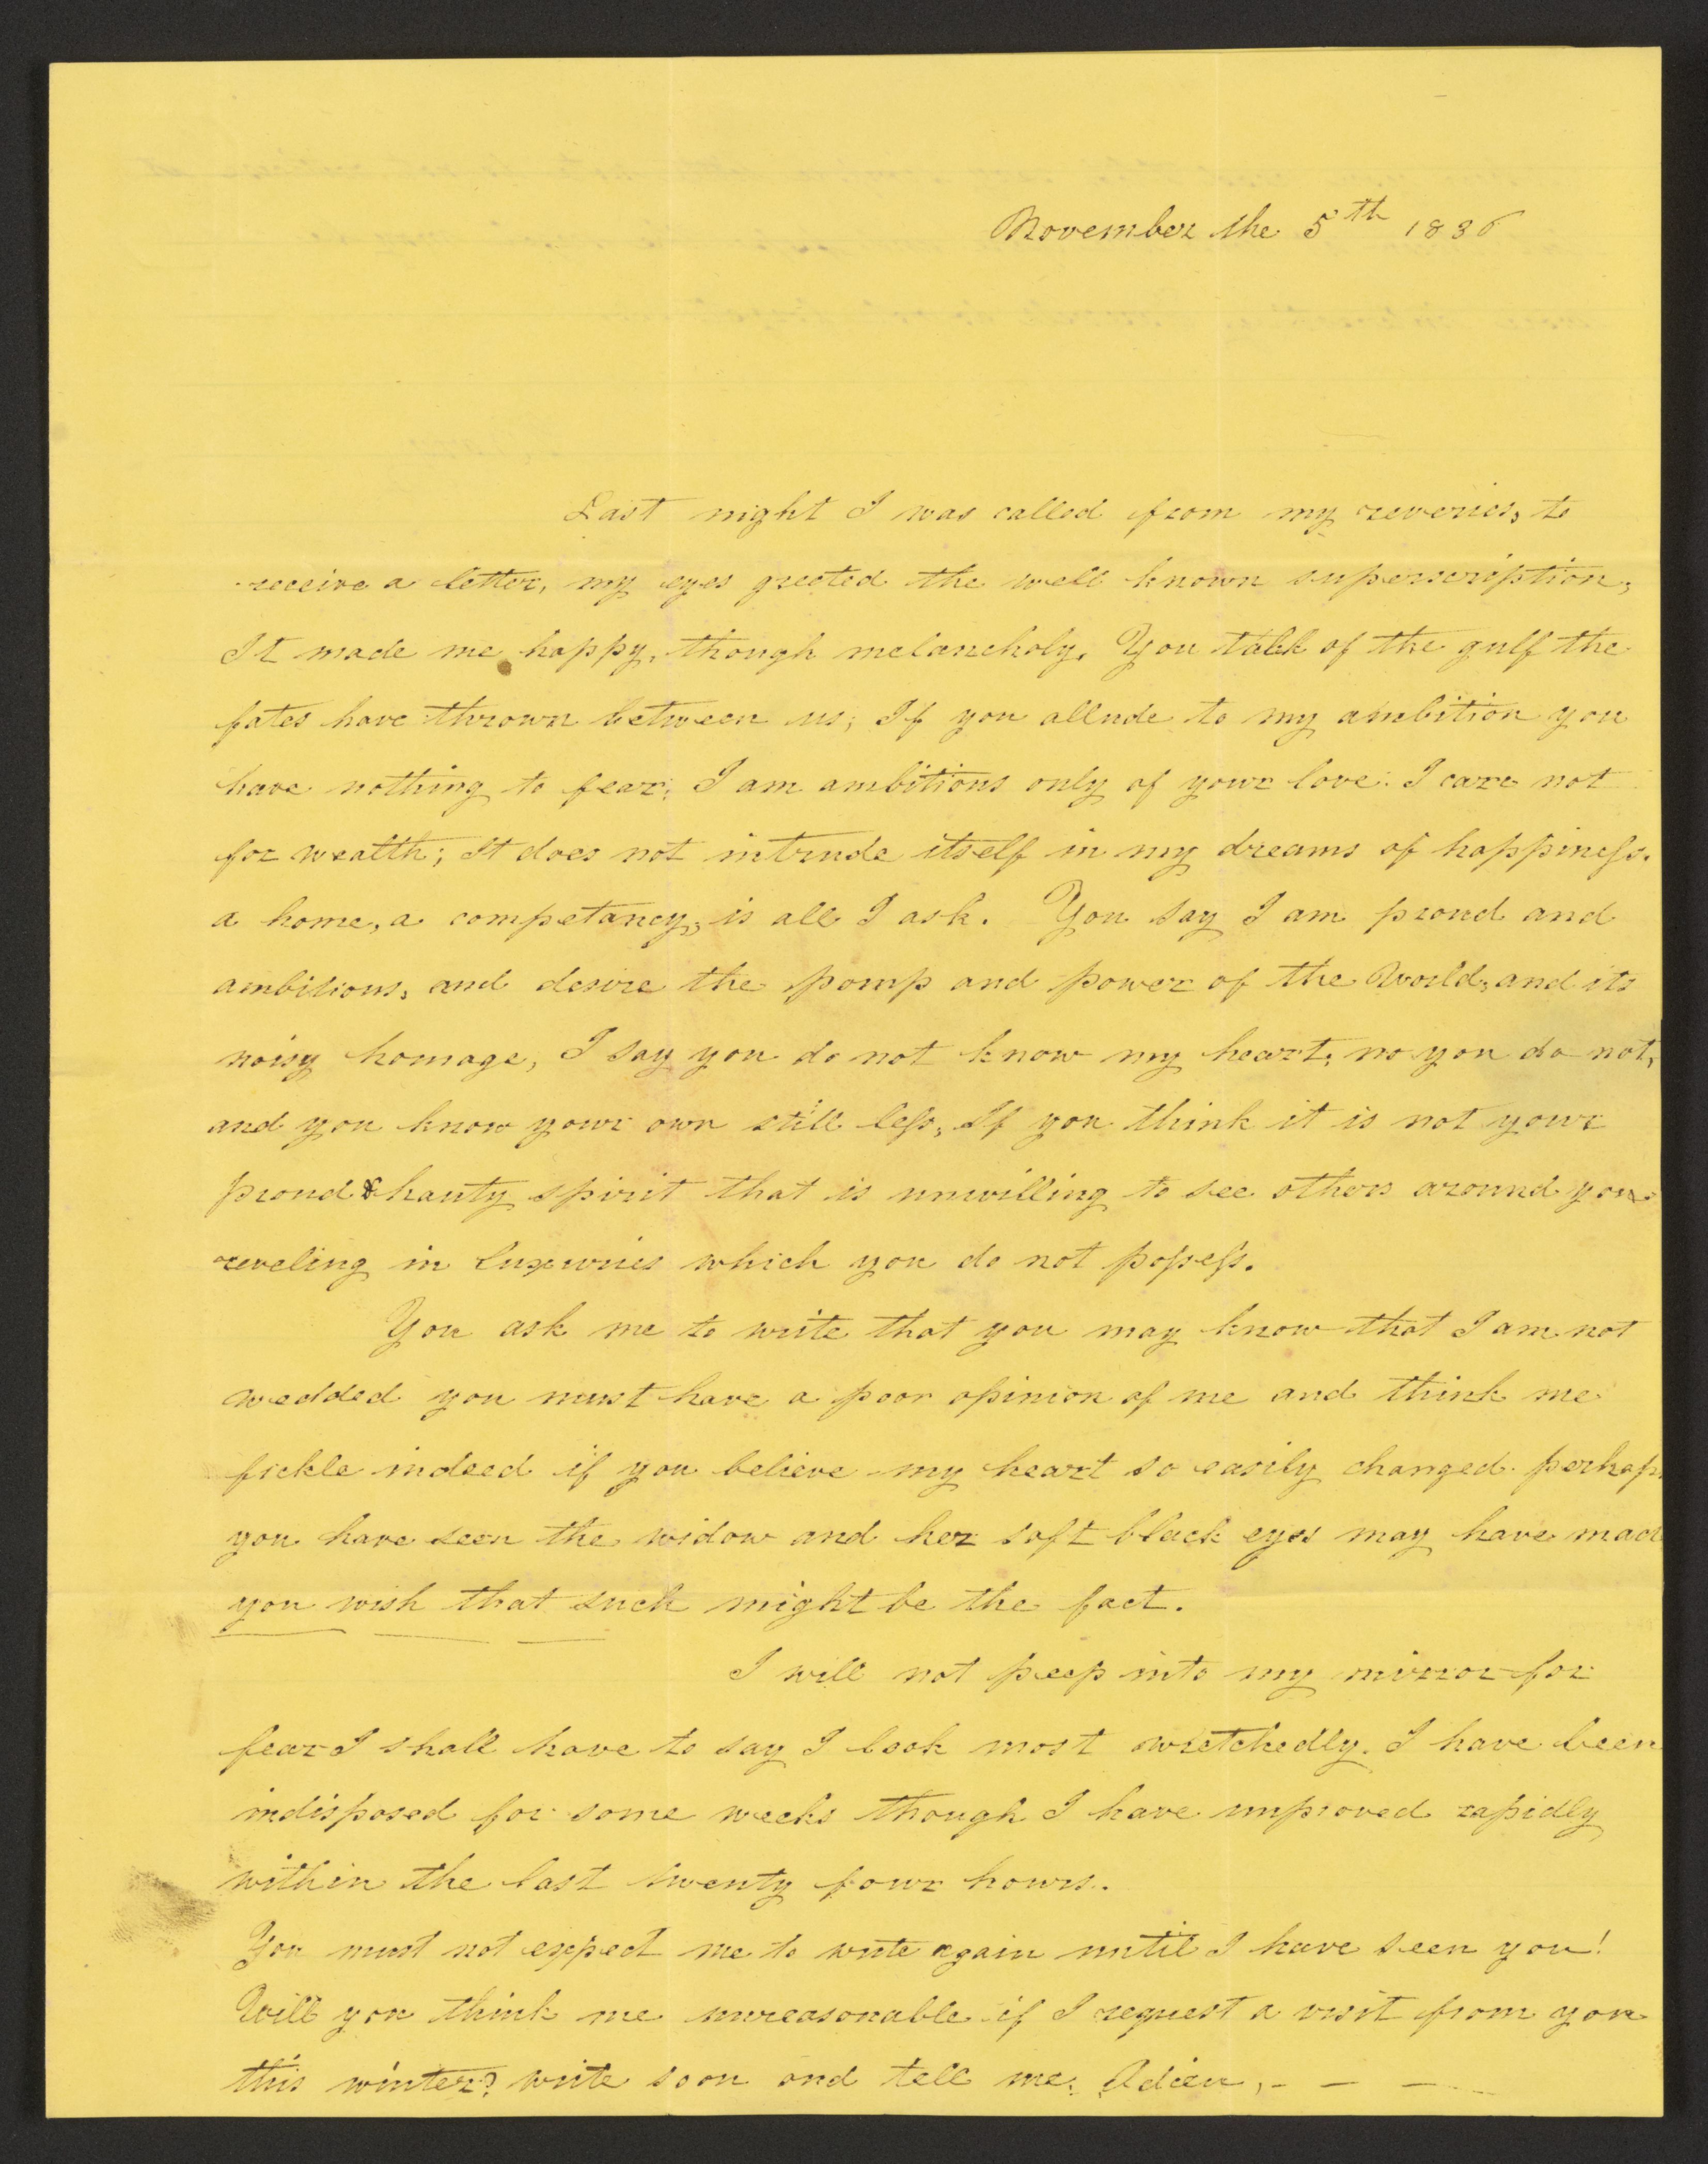 November the 5th 1836
Last night I was called from my reveries, to
receive a letter, my eyes greeted the well known superscription,
It made me happy, though melancholy, You talk of the gulf the
fates have thrown between us; If you allude to my ambition you
have nothing to fear; I am ambitious only of your love: I care not
for wealth; It does not intrude itself in my dreams of happiness.
a home, a competancy, is all I ask. You say I am proud and
ambitious, and desire the pomp and power of the World, and its
noisy homage, I say you do not know my heart, no you do not,
and you know your own still less, If you think it is not your
proud & hauty spirit that is unwilling to see others around you
reveling in luxuries which you do not possess.
You ask me to write that you may know that I am not
wedded you must have a poor opinion of me and think me
fickle indeed if you believe my heart so easily changed. perhaps
you have seen the widow and her soft black eyes may have mad
you wish that such might be the fact.
I will not peep into my mirror for
fear I shall have to say I look most wretchedly. I have been
indisposed for some weeks though I have improved rapidly
within the last twenty four hours.
You must not expect me to write again until I have seen you!
Will you think me unreasonable if I request a visit from you
this winter? write soon and tell me. Adieu, - - -